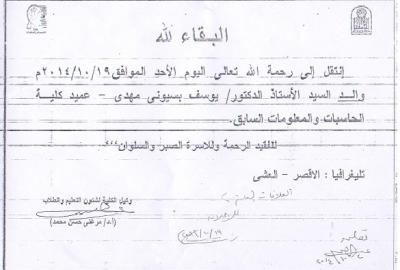 البقاء لله
إنتقل إلى رحمة الله تعالى اليوم الأحد الموافق ٢٠١٤/١٠/١٩م
والد السيد الأستاذ الدكتور/ يوسف بسيونى مهدى - عميد كلية
الحاسبات والمعلومات السابق.
للفقيد الرحمة وللاسرة الصبر والسلوان،،،
تليغرافيا : الاقصر - العشى
وكيل الكلية لشئون التعليم والطلاب
(أ.د/ مرغنى حسن محمد)